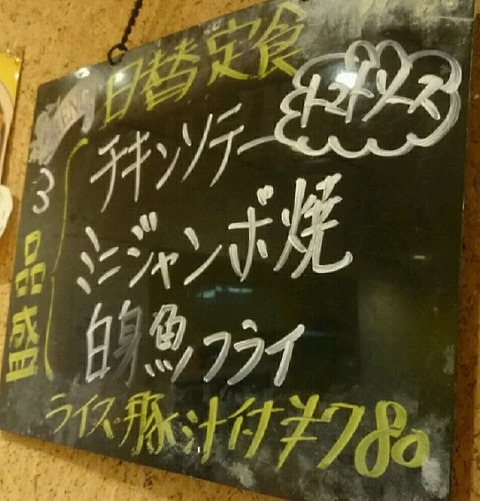 日替定食
チキンソテー トマトソース
ミニジャンボ焼
白身魚フライ
3品盛
ライス・豚汁付¥780